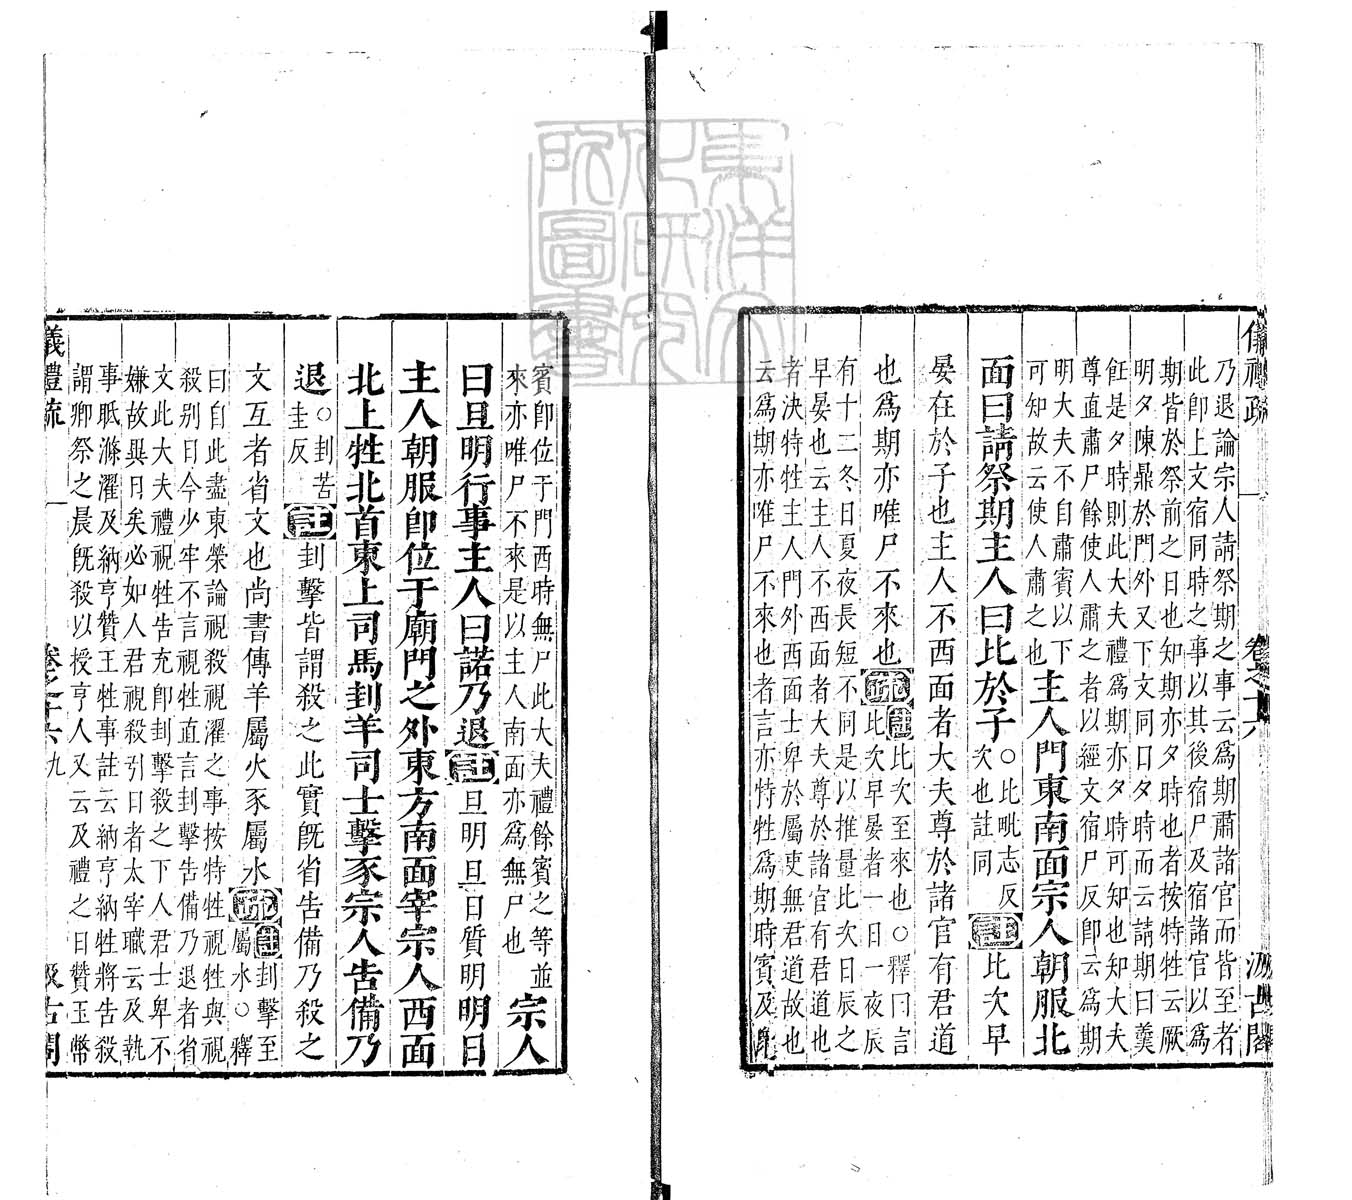 儀禮疏 卷之十六 汲古閣
乃退論宗人請祭期之事云爲期肅諸官而皆至者
此卽上文宿同時之事以其後宿尸及宿諸官以爲
期皆於祭前之日也知期亦夕時也者按特牲云厥
明夕陳鼎於門外又下文同口夕時而云請期曰羹
飪是夕時則此大夫禮爲期亦夕時可知也知大夫
尊直肅尸餘使人肅之者以經文宿尸反卽云爲期
明大夫不自肅賓以下
可知故云使人肅之也
主人門東南面宗人朝服北
面曰請祭期主人曰比於子
○比毗志反
次也註同
註比次早
晏在於子也主人不西面者大夫尊於諸官有君道
也爲期亦唯尸不來也
疏
註比次至來也○釋曰言
比次早晏者一日一夜辰
有十二冬日夏夜長短不同是以推量比次日辰之
早晏也云主人不西面者大夫尊於諸官有君道也
者決特牲主人門外西面士卑於屬吏無君道故也
云爲期亦唯尸不來也者言亦特牲爲期時賓及眾
賓卽位于門西時無尸此大夫禮餘賓之等並
來亦唯尸不來是以主人南面亦爲無尸也
宗人
曰旦明行事主人曰諾乃退註旦明旦日質明明日
主人朝服卽位于廟門之外東方南面宰宗人西面
北上牲北首東上司馬刲羊司士擊豕宗人告備乃
退
○刲苦
圭反
註刲擊皆謂殺之此實旣省告備乃殺之
文互者省文也尚書傳羊屬火豕屬水
疏
註刲擊至
屬水○釋
曰自此盡東榮論視殺視濯之事按特牲視牲與視
殺别日今少牢不言視牲直言刲擊告備乃退者省
文此大夫禮視牲告充卽刲擊殺之下人君士卑不
嫌故異日矣必如人君視殺引曰者太宰職云及執
事眡滌濯及納亨贊王牲事註云納亨納牲將告殺
謂鄉祭之晨旣殺以授亨人又云及禮之日贊玉幣
儀禮疏 卷之十六 九 汲古閣
東洋文化研究所圖書